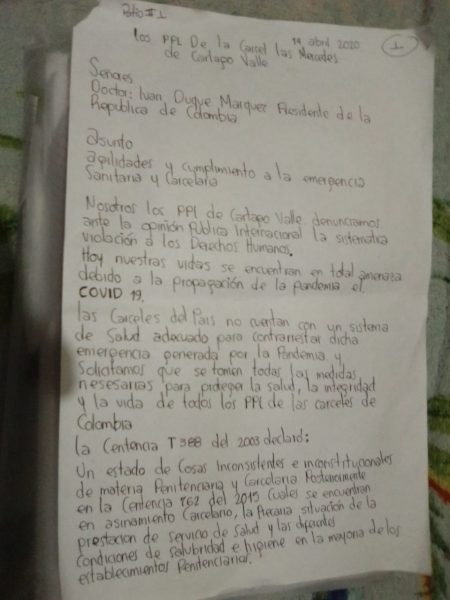 Patio #1
14 abril 2020
1
los PPL De la Carcel las Mercedes
de Cartago Valle
Señores
Doctor: Ivan Duque Marquez Presidente de la
Republica de Colombia
asunto
agilidades y cumplimiento a la emergencia
Sanitaria y Carcelaria
Nosotros los PPL de Cartago Valle denunciamos
ante la opinión Publica Internacional la sistematica
violación a los Derechos Humanos.
Hoy nuestras vidas se encuentran en total amenaza
debido a la propagación de la pandemia el
COVID 19.
las Carceles del Pais no cuentan con un sistema
de Salud adecuado para contrarrestar dicha
emergencia generada por la Pandemia y
Solicitamos que se tomen todas las medidas
nesesarias para proteger la salud, la integridad
y la vida de todos los PPL de las carceles de
Colombia
la Centencia T388 del 2003 declaró:
Un estado de Cosas Inconsistentes e inconstitucionales
de materia Penitenciaria y Carcelaria Posteriormente
en la Centencia T62 del 2015 Cuales se encuentran
en asinamiento Carcelario, la Precaria situación de la
prestacion de servicio de Salud y las dificiles
Condiciones de salubridad e higiene en la mayoria de los
establecimientos Penitenciarios.